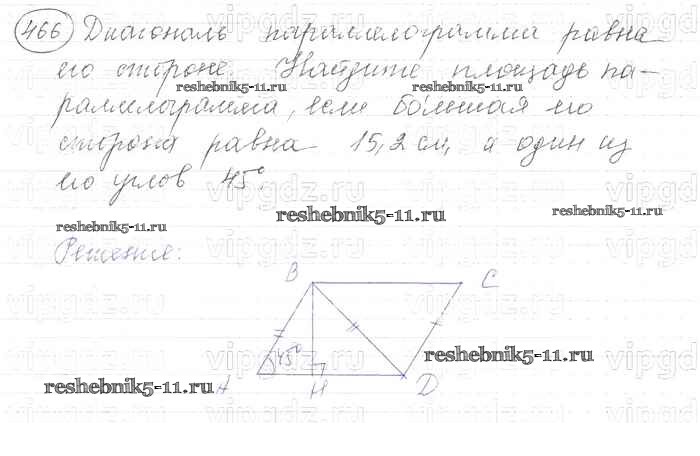 466 Диагональ параллелограмма равна
его стороне. Найдите площадь па-
reshebnik5-11.ru reshebnik5-11.ru
раллелограмма, если большая его
сторона равна 15,2 см, а один из
его углов 45°.
reshebnik5-11.ru reshebnik5-11.ru reshebnik5-11.ru
Решение:
B C
45°
reshebnik5-11.ru
reshebnik5-11.ru
A H D
vipgdz.ru